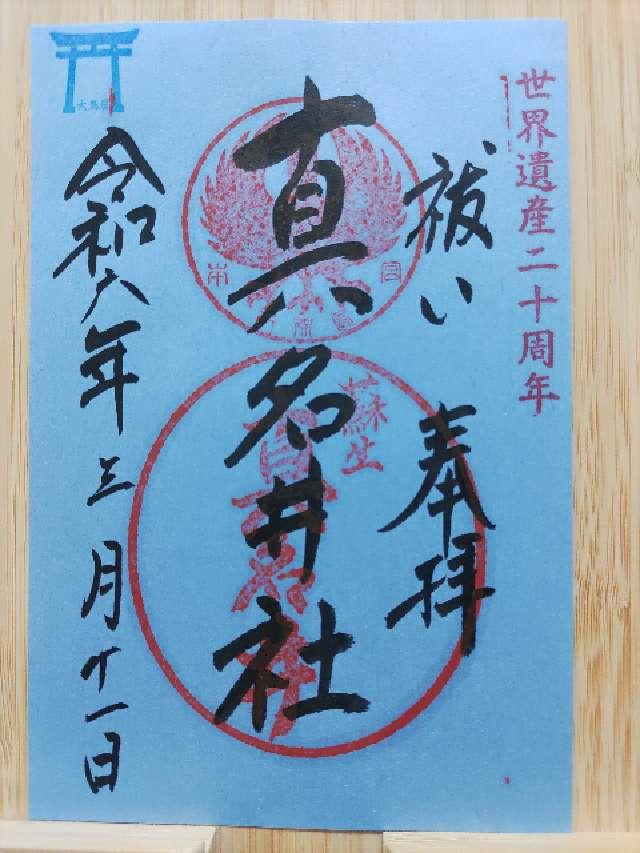 世界遺産二十周年
祓い
奉拝
真名井社
蘇生
令和六年三月十一日